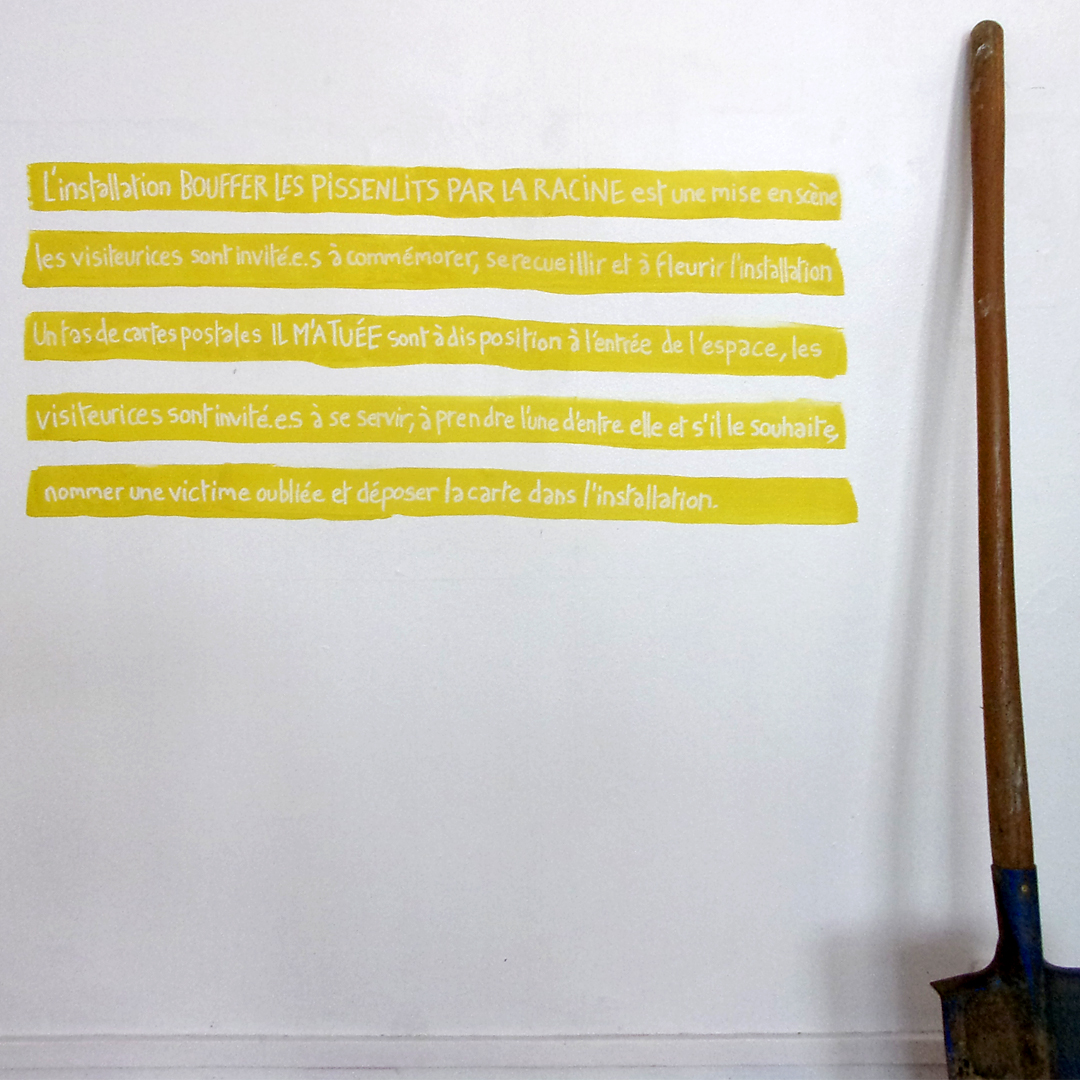 L'installation BOUFFER LES PISSENLITS PAR LA RACINE est une mise en scène
les visiteurices sont invité.e.s à commémorer, se recueillir et à fleurir l'installation
Un tas de cartes postales IL M'A TUÉE sont à disposition à l'entrée de l'espace, les
visiteurices sont invité.e.s à se servir, à prendre l'une d'entre elle et s'il le souhaite,
nommer une victime oubliée et déposer la carte dans l'installation.